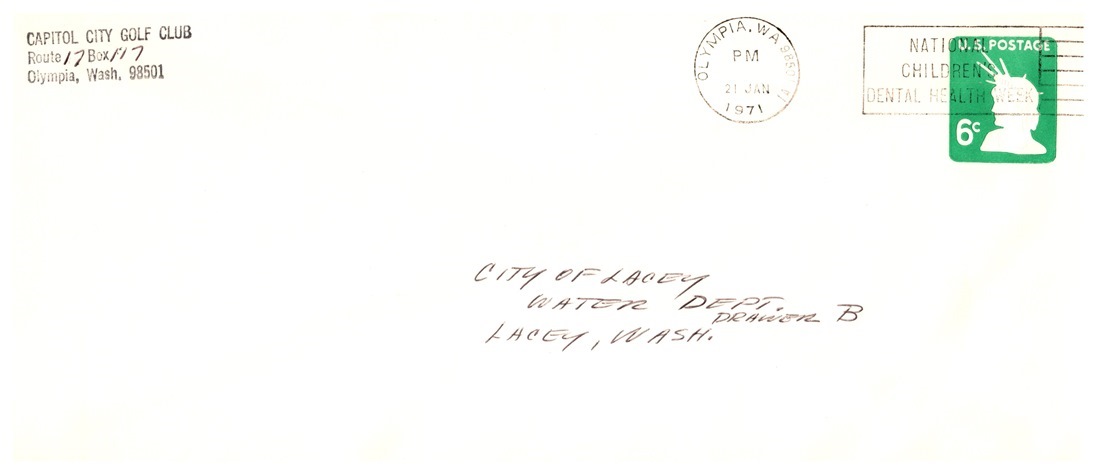 CAPITOL CITY GOLF CLUB
Route 17 Box 117
Olympia, Wash. 98501
OLYMPIA, WA
PM
21 JAN
1971
NATIONAL
CHILDREN'S
DENTAL HEALTH WEEK
U.S. POSTAGE
6c
CITY OF LACEY
WATER DEPT.
DRAWER B
LACEY, WASH.